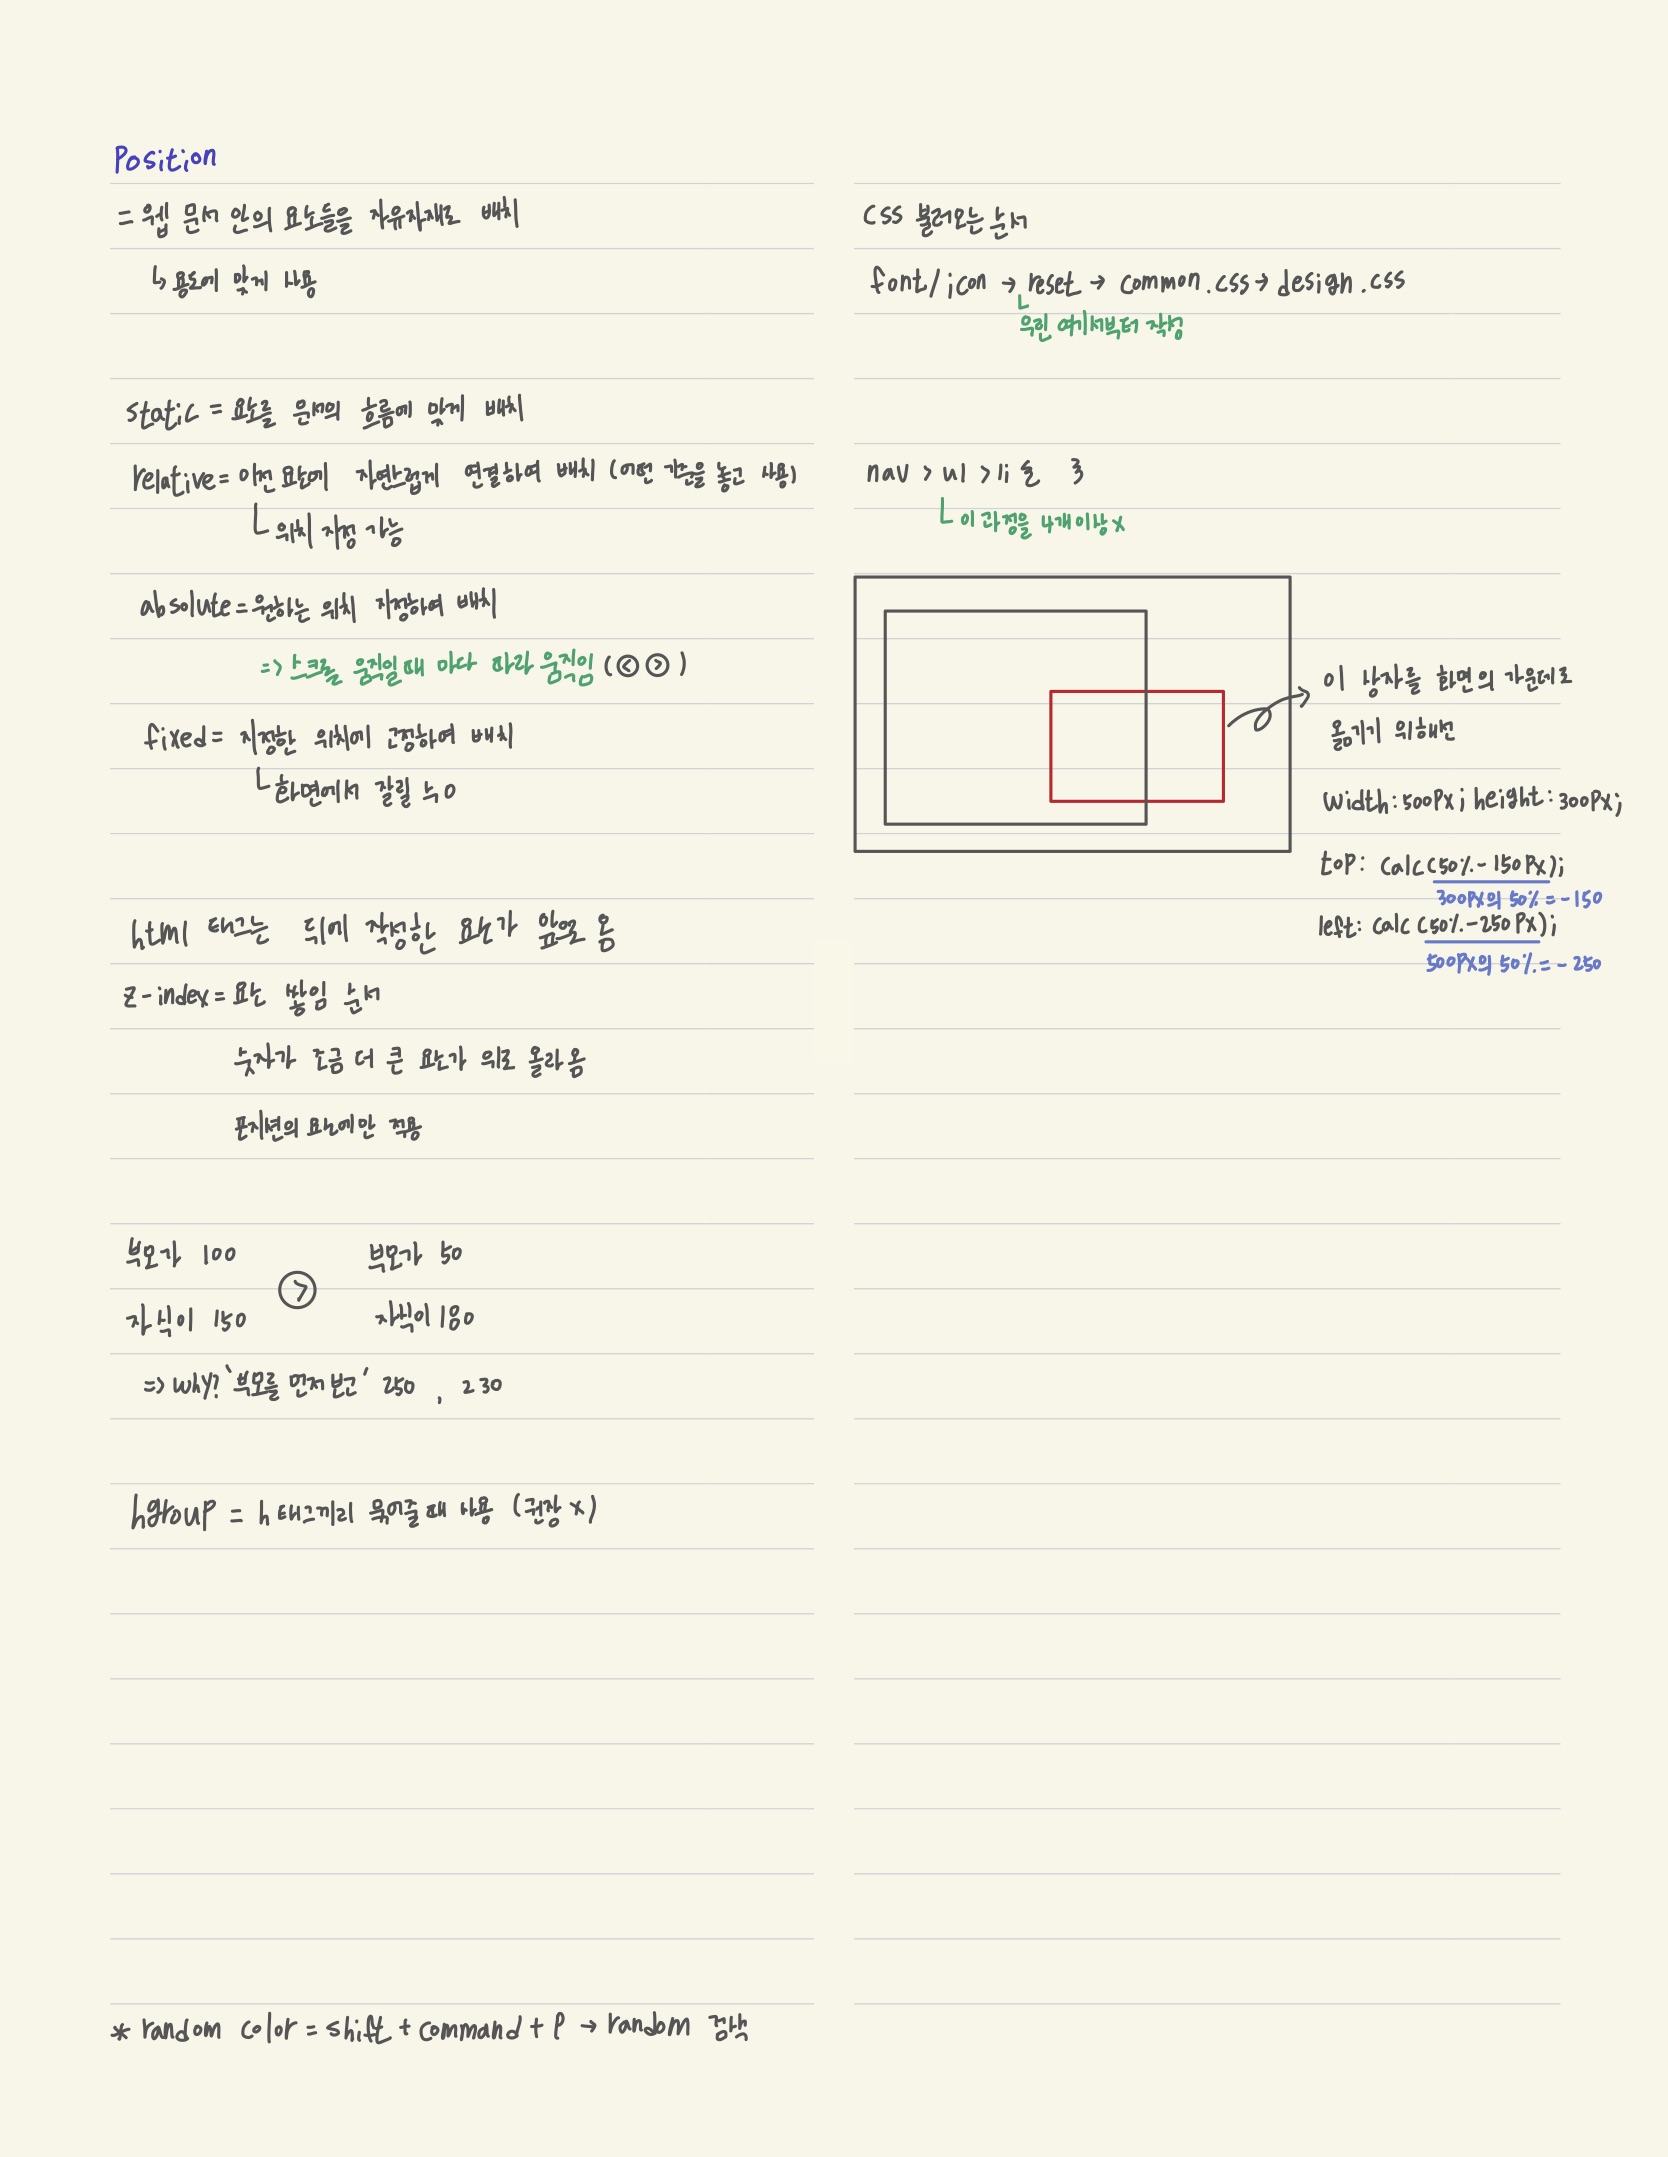 Position
= 웹 문서 안의 요소들을 자유자재로 배치
↳ 용도에 맞게 사용
static = 요소를 문서의 흐름에 맞게 배치
relative = 이전 요소에 자연스럽게 연결하여 배치 (어떤 기준을 놓고 사용)
└ 위치 지정 가능
absolute = 원하는 위치 지정하여 배치
=> 스크롤 움직일때 마다 따라 움직임 (< >)
fixed = 지정한 위치에 고정하여 배치
└ 화면에서 잘릴 수 O
html 태그는 뒤에 작성한 요소가 앞으로 옴
z-index = 요소 쌓임 순서
숫자가 조금 더 큰 요소가 위로 올라옴
포지션의 요소에만 적용
부모가 100 부모가 50
>
자식이 150 자식이 180
=> why? '부모를 먼저 보고' 250 , 230
hgroup = h 태그끼리 묶어줄때 사용 (권장 x)
* random color = shift + command + P → random 검색
CSS 불러오는 순서
font/icon → reset → common.css → design.css
└ 우린 여기서부터 작성
nav > ul > li 로 3
└ 이 과정을 4개 이상 x
이 상자를 화면의 가운데로
옮기기 위해선
width: 500px; height: 300px;
top: calc (50% - 150px);
300px의 50% = -150
left: calc (50% - 250px);
500px의 50% = -250